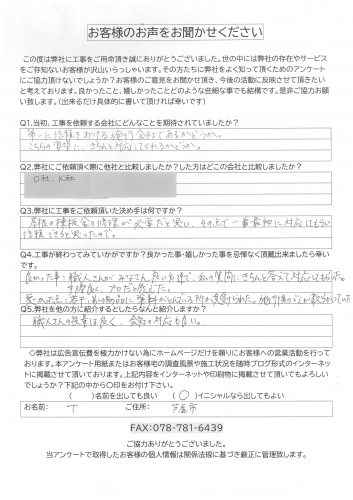 お客様のお声をお聞かせください
この度は弊社に工事をご用命頂き誠にありがとうございました。世の中には弊社の存在やサービス
をご存知ないお客様が沢山いらっしゃいます。その方たちに弊社をよく知って頂くためのアンケート
にご協力頂けないでしょうか？お客様のご意見をお聞かせ頂き、今後の活動に反映させて頂きたい
と考えております。良かったこと、嬉しかったことどのような些細な事でも結構です。是非ご協力お願
い致します。（出来るだけ具体的に書いて頂ければ幸いです）
Q1.当初、工事を依頼する会社にどんなことを期待されていましたか？
第一に信頼をおける施行会社であるかどうか。
こちらの要望に、きちんと対応してくれるかどうか。
Q2.弊社にご依頼頂く際に他社と比較しましたか？した方はどこの会社と比較しましたか？
O社、K社
Q3.弊社に工事をご依頼頂いた決め手は何ですか？
屋根の棟板金の修理が必要だと思い、その点で一番親切に対応してもらい
信頼できると思ったので。
Q4.工事が終わってみていかがですか？良かった事・嬉しかった事を忌憚なく頂戴出来ましたら幸い
です。
良かった事：職人さんがみなさん良い方達で、私の質問にきちんと答えて対応してもらった。
プロだと感じた。
Q5.弊社を他の方に紹介するとしたらなんと紹介しますか？
職人さんの技量は良く、会社の対応も良い。
◇弊社は広告宣伝費を極力かけない為にホームページだけを頼りにお客様への営業活動を行って
おります。本アンケート用紙またはお客様宅の調査風景や施工状況を随時ブログ形式のインターネッ
トに掲載させて頂いております。上記内容をインターネットや印刷物に掲載させて頂いてもよろしい
でしょうか？下記の中から〇印をお付け下さい。
（　）名前を出しても良い（○）イニシャルなら出してもよい
お名前： T ご住所： 芦屋市
FAX:078-781-6439
ご協力ありがとうございました。
当アンケートで取得したお客様の個人情報は関係法規に基づき厳正に管理致します。